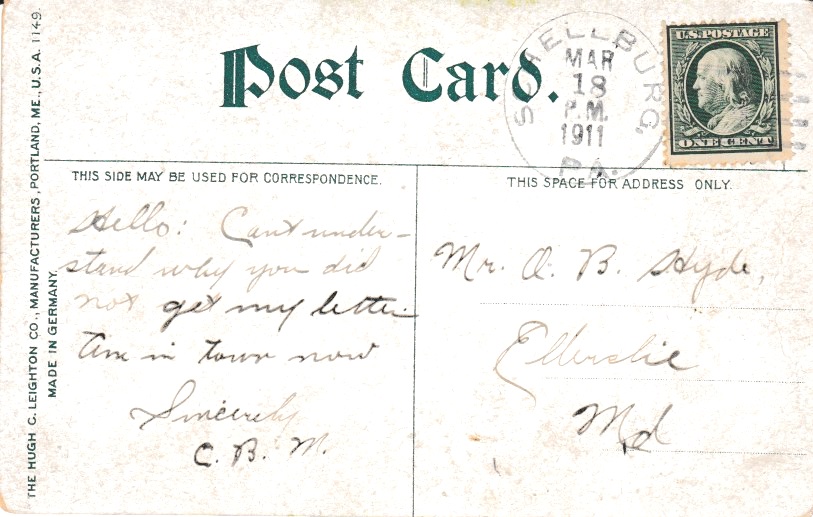 THE HUGH C. LEIGHTON CO., MANUFACTURERS, PORTLAND, ME., U.S.A. 1149.
MADE IN GERMANY.
Post Card.
SCHELLBURG,
MAR
18
P.M.
1911
PA.
U.S. POSTAGE
ONE CENT
THIS SIDE MAY BE USED FOR CORRESPONDENCE.
Hello: Cant under-
stand why you did
not get my letter
Am in town now
Sincerely
C. B. M.
THIS SPACE FOR ADDRESS ONLY.
Mr. O. B. Hyde,
Ellerslie
Md